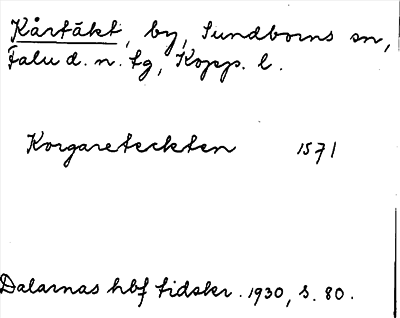 Kårtäkt, by, Sundborns sn,
Falu d. n. tg, Kopp. l.
Korgareteckten 1571
Dalarnas hbf tidskr. 1930, s. 80.